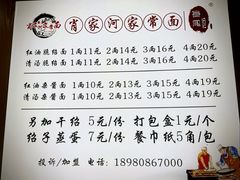 肖家河家常面
红油脆绍面 1两11元 2两14元 3两16元 4两20元
清汤脆绍面 1两11元 2两14元 3两16元 4两20元
红油杂酱面 1两10元 2两13元 3两15元 4两19元
清汤杂酱面 1两10元 2两13元 3两15元 4两19元
另加干绍 5元/份 打包盒1元/个
绍子蒸蛋 7元/份 餐巾纸5角/包
投诉/加盟 电话: 18980867000